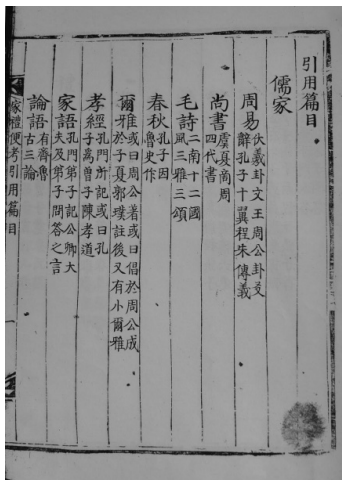 引用篇目
儒家
周易伏羲卦文王周公卦爻
辭孔子十翼程朱傳義
尚書虞夏商周
四代書
毛詩二南十二國
風三雅三頌
春秋孔子因
魯史作
爾雅或曰周公著或曰倡於周公成
於子夏郭璞註後又有小爾雅
孝經孔門所記或曰孔
子爲曾子陳孝道
家語孔門弟子記公卿大
夫及弟子問答之言
論語有齊魯
古三論
家禮便考引用篇目
一